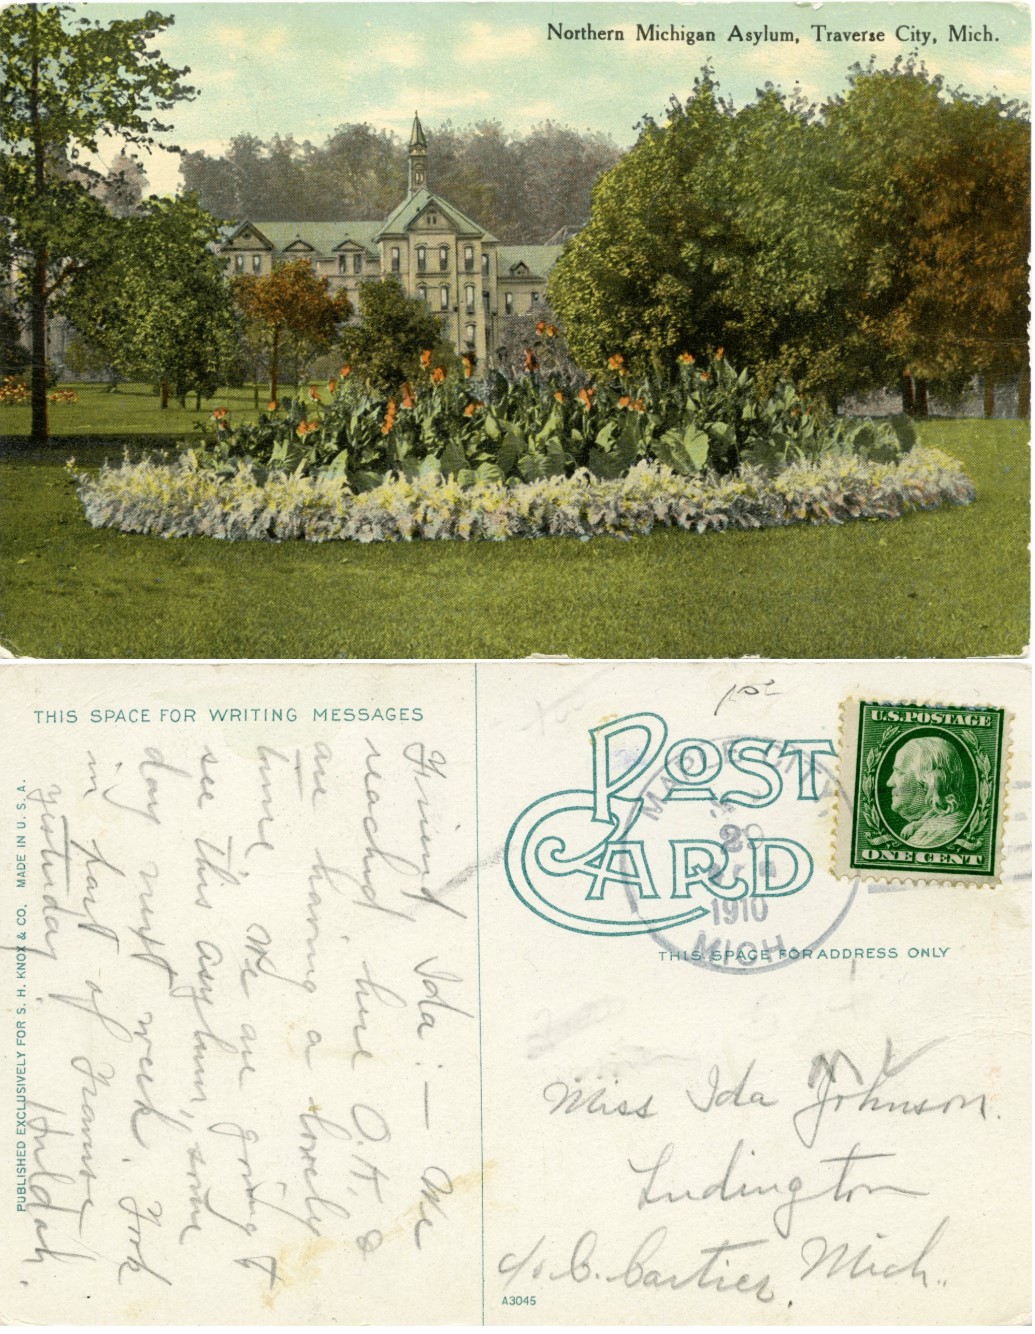 Northern Michigan Asylum, Traverse City, Mich.
THIS SPACE FOR WRITING MESSAGES
Friend Ida:— We
reached here O.K. &
are having a lovely
time. We are going to
see this asylum, some
day next week. Took
in part of Traverse
yesterday Huldah.
PUBLISHED EXCLUSIVELY FOR S. H. KNOX & CO. MADE IN U. S. A.
POST
CARD
U.S. POSTAGE
ONE CENT
1910
MICH
THIS SPACE FOR ADDRESS ONLY
Miss Ida Johnson.
Ludington
c/o C. Cartier, Mich.
A3045